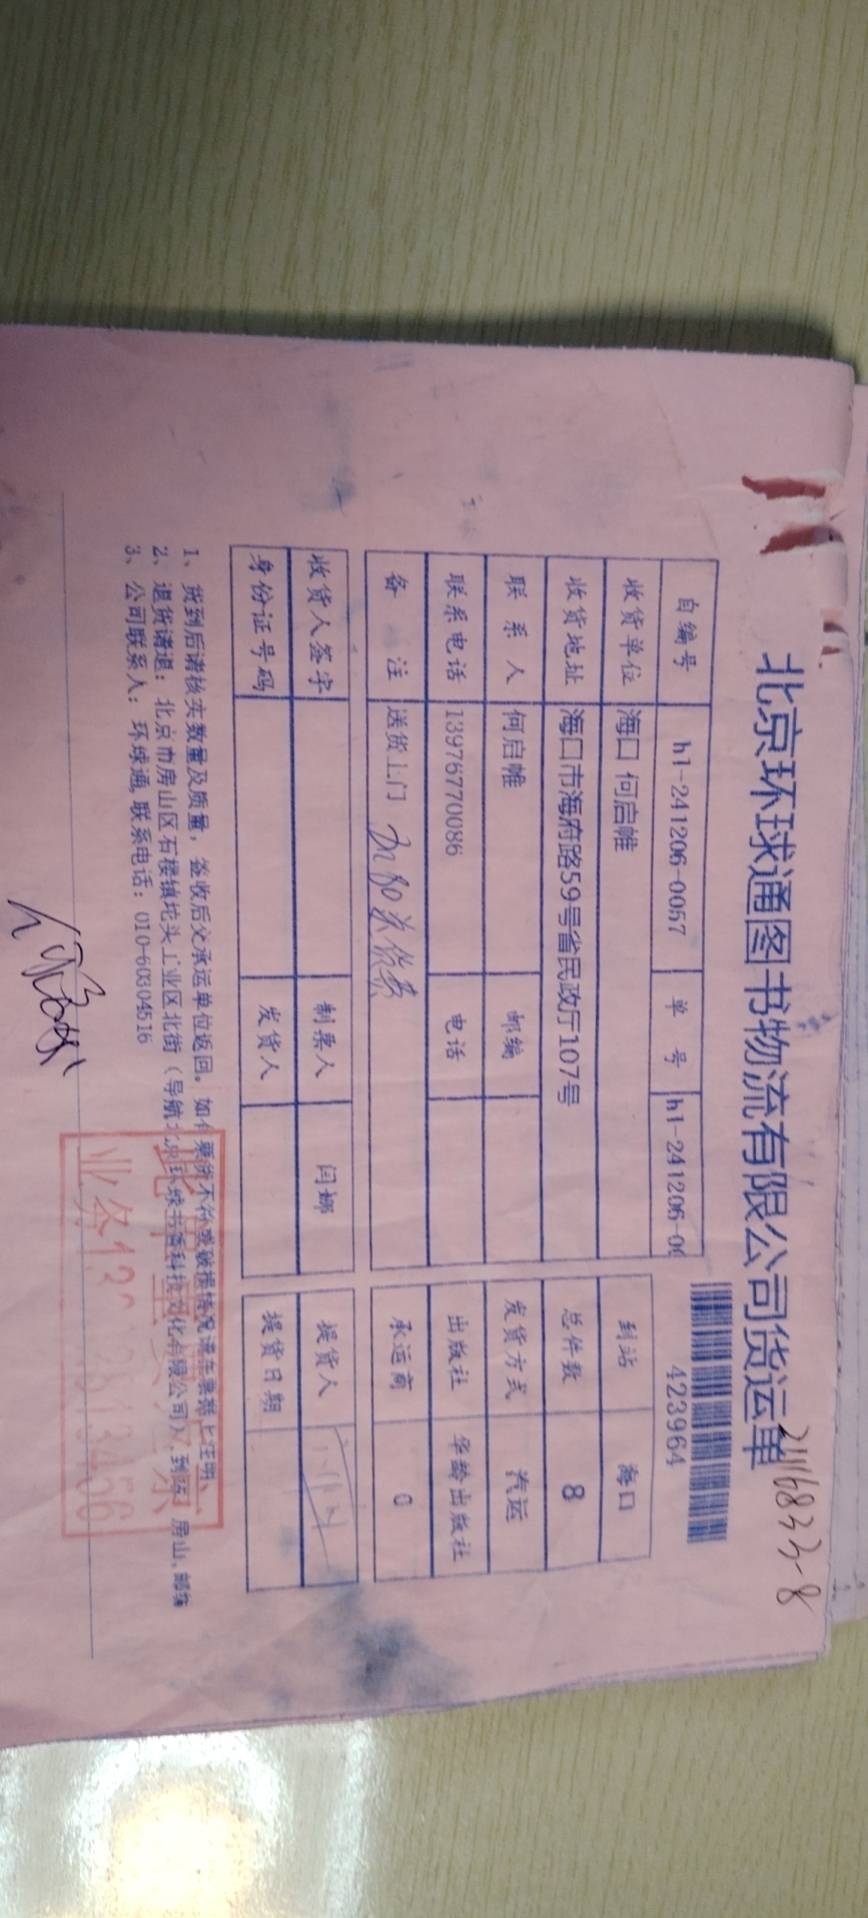 北京环球通图书物流有限公司货运单
2411683
423964
自编号 h1-241206-0057 单 号 h1-241206-00 到站 海口
收货单位 海口 何启帷 总件数 8
收货地址 海口市海府路59号省民政厅107号 发货方式 汽运
联 系 人 何启帷 邮编 出版社 华龄出版社
联系电话 13976770086 电话 承运商 0
备 注 送货上门
收货人签字 制票人 闫娜 提货人
身份证号码 发货人 提货日期
1、货到后请核实数量及质量，签收后交承运单位返回。如 票货不符或破损情况请在票据上注明
2、退货请退：北京市房山区石楼镇坨头工业区北街（导航 有限公司），到站 房山，邮编
3、公司联系人：环球通,联系电话：010-60304516